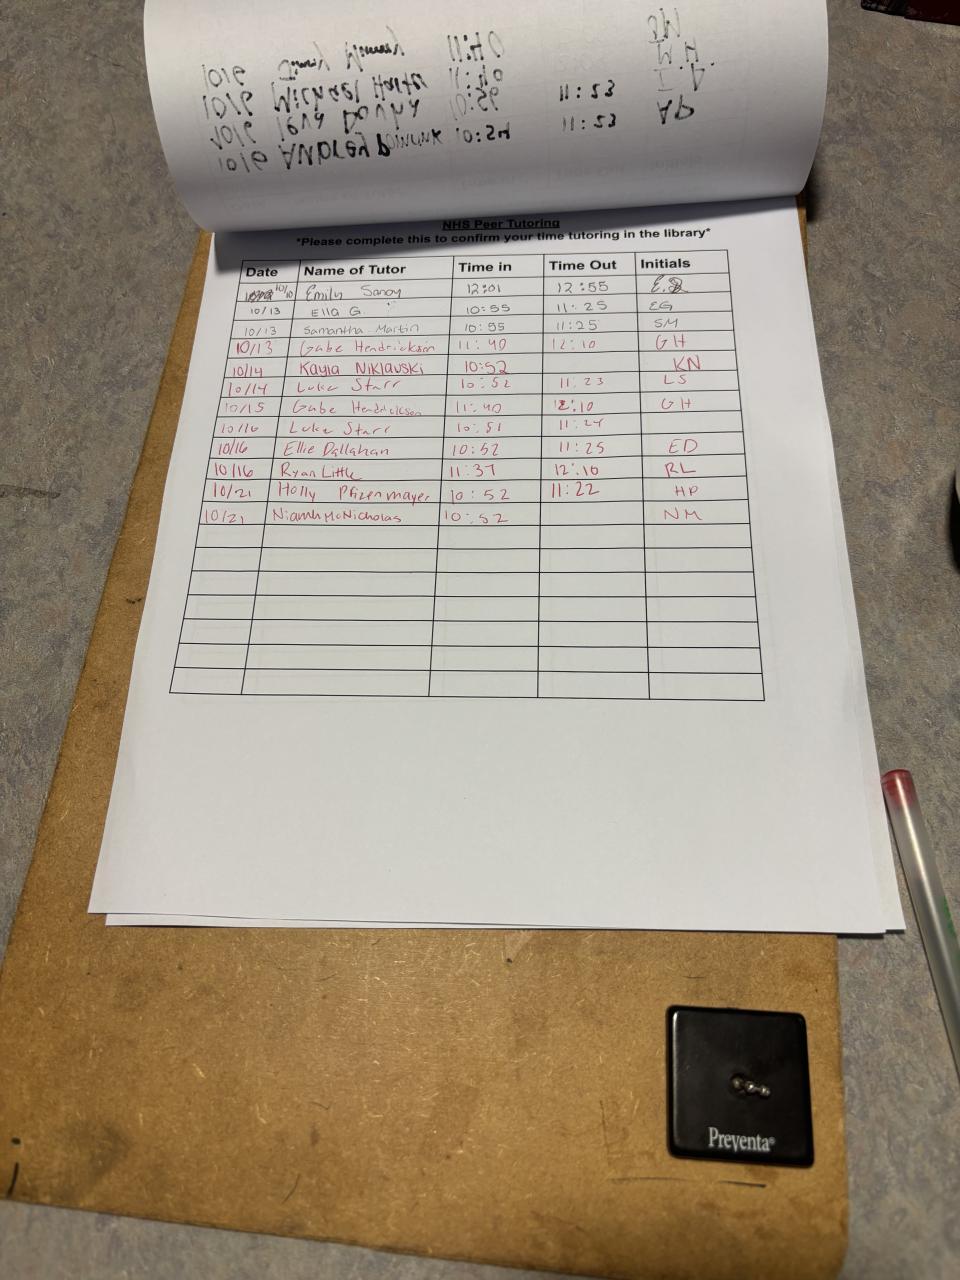 10/6 11:40 SM
10/6 Michael 11:40 M.H
10/6 10:56 11:23
10/6 10:54 11:23 AP
NHS Peer Tutoring
*Please complete this to confirm your time tutoring in the library*
Date Name of Tutor Time in Time Out Initials
10/10 Emily 12:01 12:55
10/13 Ella G. 10:55 11:25 EG
10/13 Samantha Martin 10:55 11:25 SM
10/13 Gabe Hendrickson 11:40 12:10 GH
10/14 Kayla Niklauski 10:52 KN
10/14 Luke Starr 10:52 11:23 LS
10/15 Gabe Hendrickson 11:40 12:10 GH
10/16 Luke Starr 10:51 11:24
10/16 Ellie Dallahan 10:52 11:25 ED
10/16 Ryan Little 11:37 12:10 RL
10/21 Holly Pfizenmayer 10:52 11:22 HP
10/21 Niamh McNicholas 10:52 NM
Preventa®